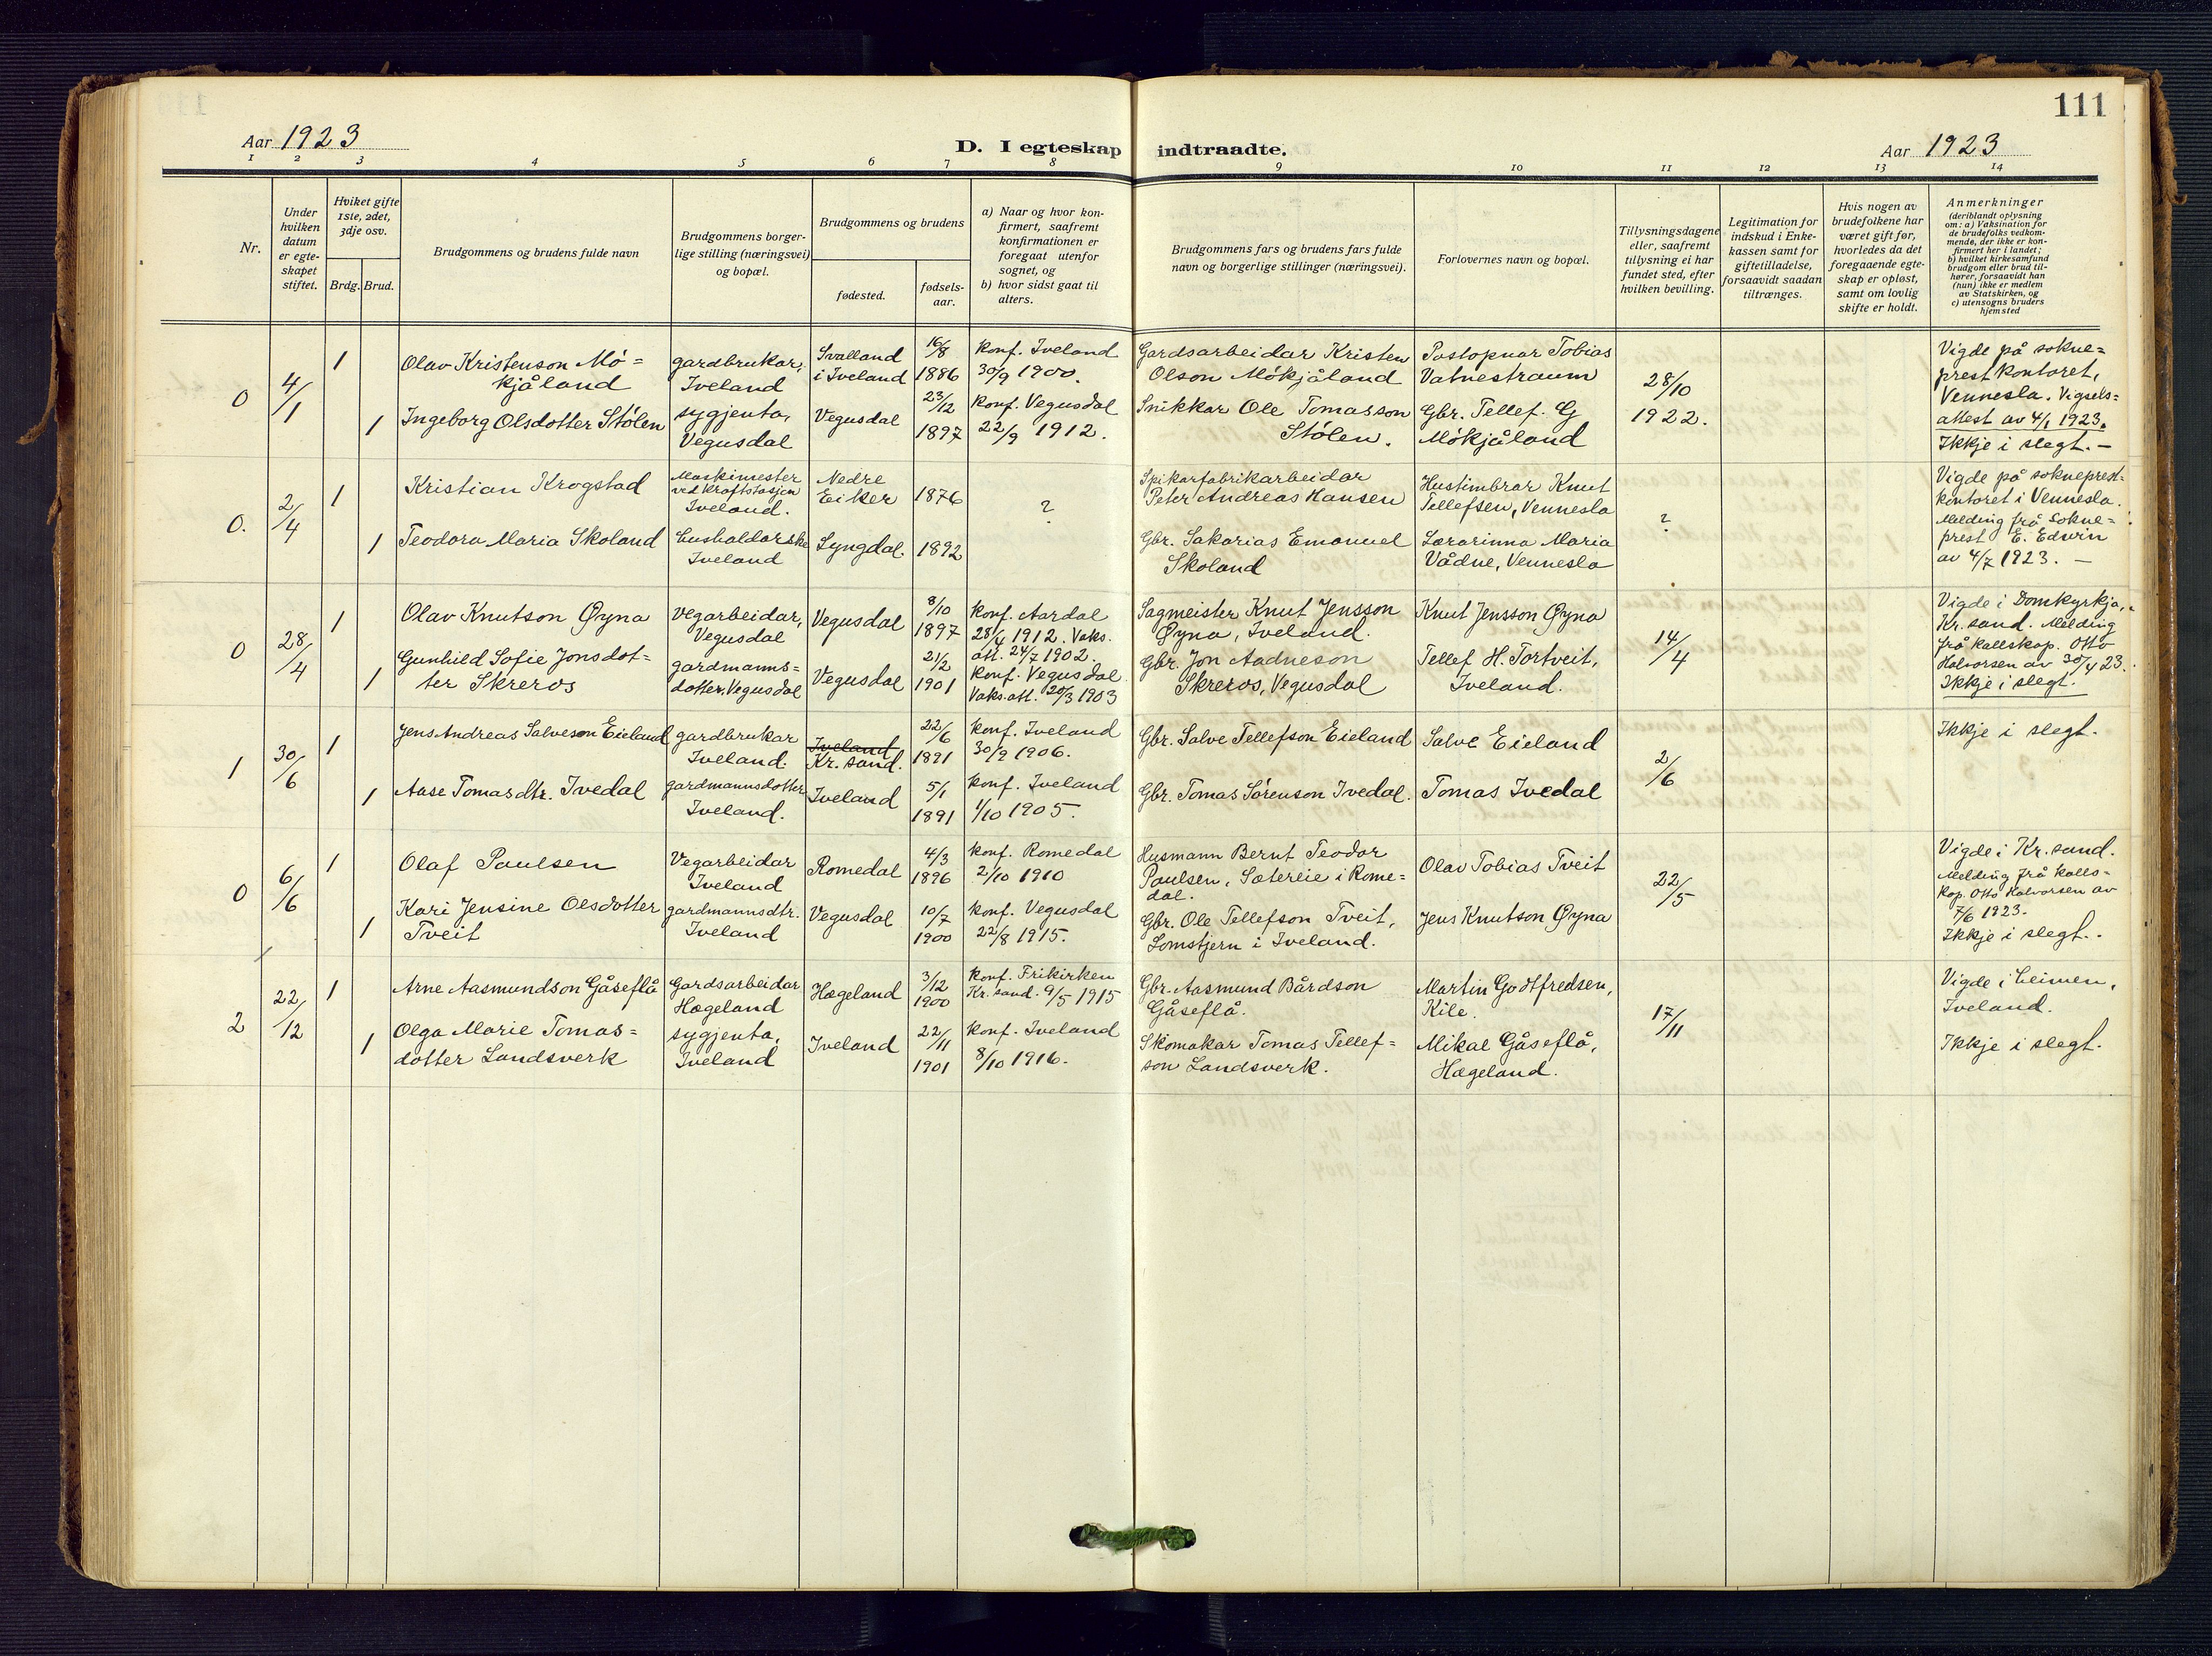 111
Aar 1923
D. I egteskap indtraadte.
Aar 1923
1 2 3 4 5 6 7 8 9 10 11 12 13 14
Nr.
Under hvilken datum er egteskapet stiftet.
Hviket gifte 1ste, 2det, 3dje osv.
Brdg. Brud.
Brudgommens og brudens fulde navn
Brudgommens borgerlige stilling (næringsvei) og bopæl.
Brudgommens og brudens
fødested.
fødselsaar.
a) Naar og hvor konfirmert, saafremt konfirmationen er foregaat utenfor sognet, og
b) hvor sidst gaat til alters.
Brudgommens fars og brudens fars fulde navn og borgerlige stillinger (næringsvei).
Forlovernes navn og bopæl.
Tillysningsdagene eller, saafremt tillysning ei har fundet sted, efter hvilken bevilling.
Legitimation for indskud i Enkekassen samt for giftetilladelse, forsaavidt saadan tiltrænges.
Hvis nogen av brudefolkene har været gift før, hvorledes da det foregaaende egteskap er opløst, samt om lovlig skifte er holdt.
Anmerkninger
(deriblandt oplysning om: a) Vaksination for de brudefolks vedkommende, der ikke er konfirmert her i landet;
b) hvilket kirkesamfund brudgom eller brud tilhører, forsaavidt han (hun) ikke er medlem av Statskirken, og
c) utensogns bruders hjemsted
0
4/1
1
Olav Kristenson Mó=
kjåland
gardbrukar,
Iveland
Svalland
i Iveland
16/8
1886
konf. Iveland
30/9 1900.
Gardsarbeidar Kristen
Olson Mókjåland
Postopnar Tobias
Vatnestraum
28/10
1922.
Vigde på sokne=
prestkontoret,
Vennesla. Vigsels=
attest av 4/1 1923.
Ikkje i slegt. —
1
Ingeborg Olsdotter Stólen
sygjenta,
Vegusdal
Vegusdal
23/12
1897
konf. Vegusdal
22/9 1912.
Snikkar Ole Tomasson
Stólen.
Gbr. Tellef. G
Mókjåland
0.
2/4
1
Kristian Krogstad
Maskinmester
ved kraftstasjon
Iveland.
Nedre
Eiker
1876
?
Spikarfabrikarbeidar
Peter Andreas Hansen
Hustimbrar Knut
Tellefsen, Vennesla
?
Vigde på sokneprest=
kontoret i Vennesla.
Melding frå Sokne=
prest E. Edwin
av 4/7 1923. —
1
Teodora Maria Skoland
husholdarske
Iveland
Lyngdal
1892
Gbr. Sakarias Emanuel
Skoland
Lærarinna Maria
Vådne, Vennesla
0
28/4
1
Olav Knutson Øyna
Vegarbeidar,
Vegusdal
Vegusdal
8/10
1897
konf. Aardal
28/4 1912. Vaks.
att. 24/7 1902.
Sagmeister Knut Jensson
Øyna, Iveland.
Knut Jensson Øyna
14/4
Vigde i Domkyrkja,
Kr.sand. Melding
frå kallskap. Otto
Halvorsen av 30/4 23.
Ikkje i slegt.
1
Gunhild Sofie Jonsdot=
ter Skreros
gardmanns=
dotter, Vegusdal
Vegusdal
21/2
1901
konf. Vegusdal
Vaks.att. 20/3 1903
Gbr. Jon Aadneson
Skreros, Vegusdal
Tellef H. Tortveit,
Iveland.
1
30/6
1
Jens Andreas Salveson Eieland
gardbrukar
Iveland.
Iveland
Kr.sand.
22/6
1891
konf. Iveland
30/9 1906.
Gbr. Salve Tellefson Eieland
Salve Eieland
2/6
Ikkje i slegt.
1
Aase Tomasdtr. Ivedal
gardmannsdotter
Iveland.
Iveland
5/1
1891
konf. Iveland
1/10 1905.
Gbr. Tomas Sórenson Ivedal.
Tomas Ivedal
0
6/6
1
Olaf Paulsen
Vegarbeidar
Iveland
Romedal
4/3
1896
konf. Romedal
2/10 1910
Husmann Bernt Teodor
Paulsen, Sætereie i Rome=
dal.
Olav Tobias Tveit
22/5
Vigde i Kr.sand.
Melding frå kalls=
kap. Otto Halvorsen av
7/6 1923.
Ikkje i slegt.
1
Kari Jensine Olsdotter
Tveit
gardmannsdtr.
Iveland
Vegusdal
10/7
1900
konf. Vegusdal
22/8 1915.
Gbr. Ole Tellefson Tveit,
Lomstjern i Iveland.
Jens Knutson Øyna
2
22/12
1
Arne Aasmundson Gåseflå
Gardsarbeidar
Hægeland
Hægeland
3/12
1900
konf. Frikirken
Kr.sand. 9/5 1915
Gbr. Aasmund Bårdson
Gåseflå.
Martin Godtfredsen,
Kile.
17/11
Vigde i heimen,
Iveland.
Ikkje i slegt.
1
Olga Marie Tomas=
dotter Landsverk
sygjenta,
Iveland
Iveland
22/11
1901
konf. Iveland
8/10 1916.
Skomakar Tomas Tellef=
son Landsverk.
Mikal Gåseflå,
Hægeland.